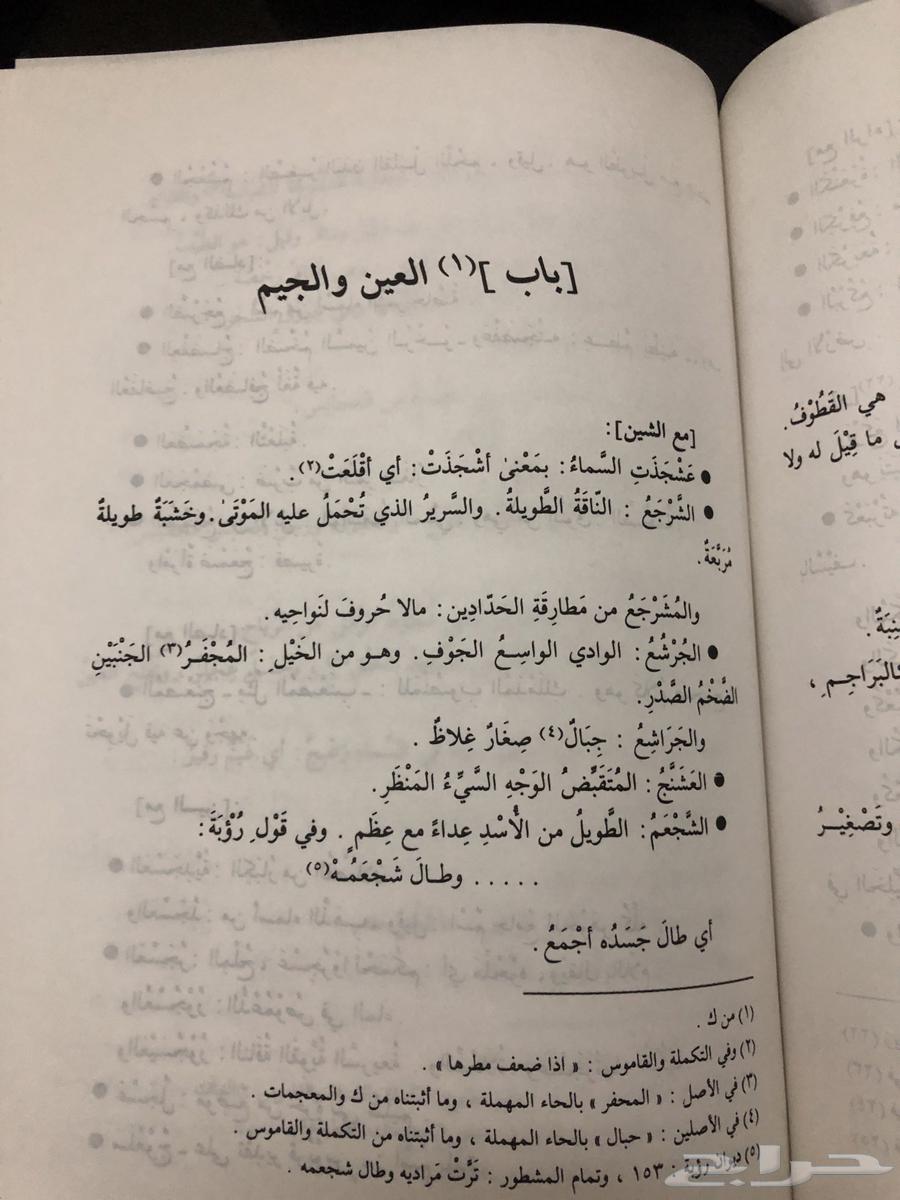 [باب ](١) العين والجيم
[مع الشين]:
● عَشْجَذَتِ السَّماءُ: بمَعْنىٰ أشْجَذَتْ: أي أقْلَعَتْ(٢).
● الشَّرْجَعُ : النّاقَةُ الطَّويلةُ. والسَّريرُ الذي تُحْمَلُ عليه المَوْتَىٰ. وخَشَبَةٌ طويلةٌ
مُرَبَّعَةٌ.
والمُشَرْجَعُ من مَطارِقَةِ الحَدّادِين: مالا حُروفَ لنَواحِيه.
● الجُرْشُعُ: الوادي الواسِعُ الجَوْفِ. وهو من الخَيْلِ: المُجْفَرُ(٣) الجَنْبَيْنِ
الضَّخْمُ الصَّدْرِ.
والجَرَاشِعُ : جِبَالٌ(٤) صِغَارٌ غِلاظٌ .
● العَشَنَّجُ: المُتَقَبِّضُ الوَجْهِ السَّيِّءُ المَنْظَرِ.
● الشَّجْعَمُ: الطَّويلُ من الأُسْدِ عِداءً مع عِظَمٍ . وفي قَوْلِ رُؤْبَةَ:
..... وطـالَ شَجْعَمُـهْ(٥)
أي طالَ جَسَدُه أجْمَعُ .
(١) من ك .
(٢) وفي التكملة والقاموس : « اذا ضعف مطرها » .
(٣) في الأصل : « المحفر » بالحاء المهملة ، وما أثبتناه من ك والمعجمات .
(٤) في الأصلين : « حبال » بالحاء المهملة ، وما أثبتناه من التكملة والقاموس .
(٥) ديوان رؤبة : ١٥٣ ، وتمام المشطور : تَرَّتْ مَراديه وطال شجعمه .
هي القَطُوْفُ.
ما قِيْلَ له ولا
كالبَرَاجِـمِ ،
وتَصْغِيْـرُ
حراج